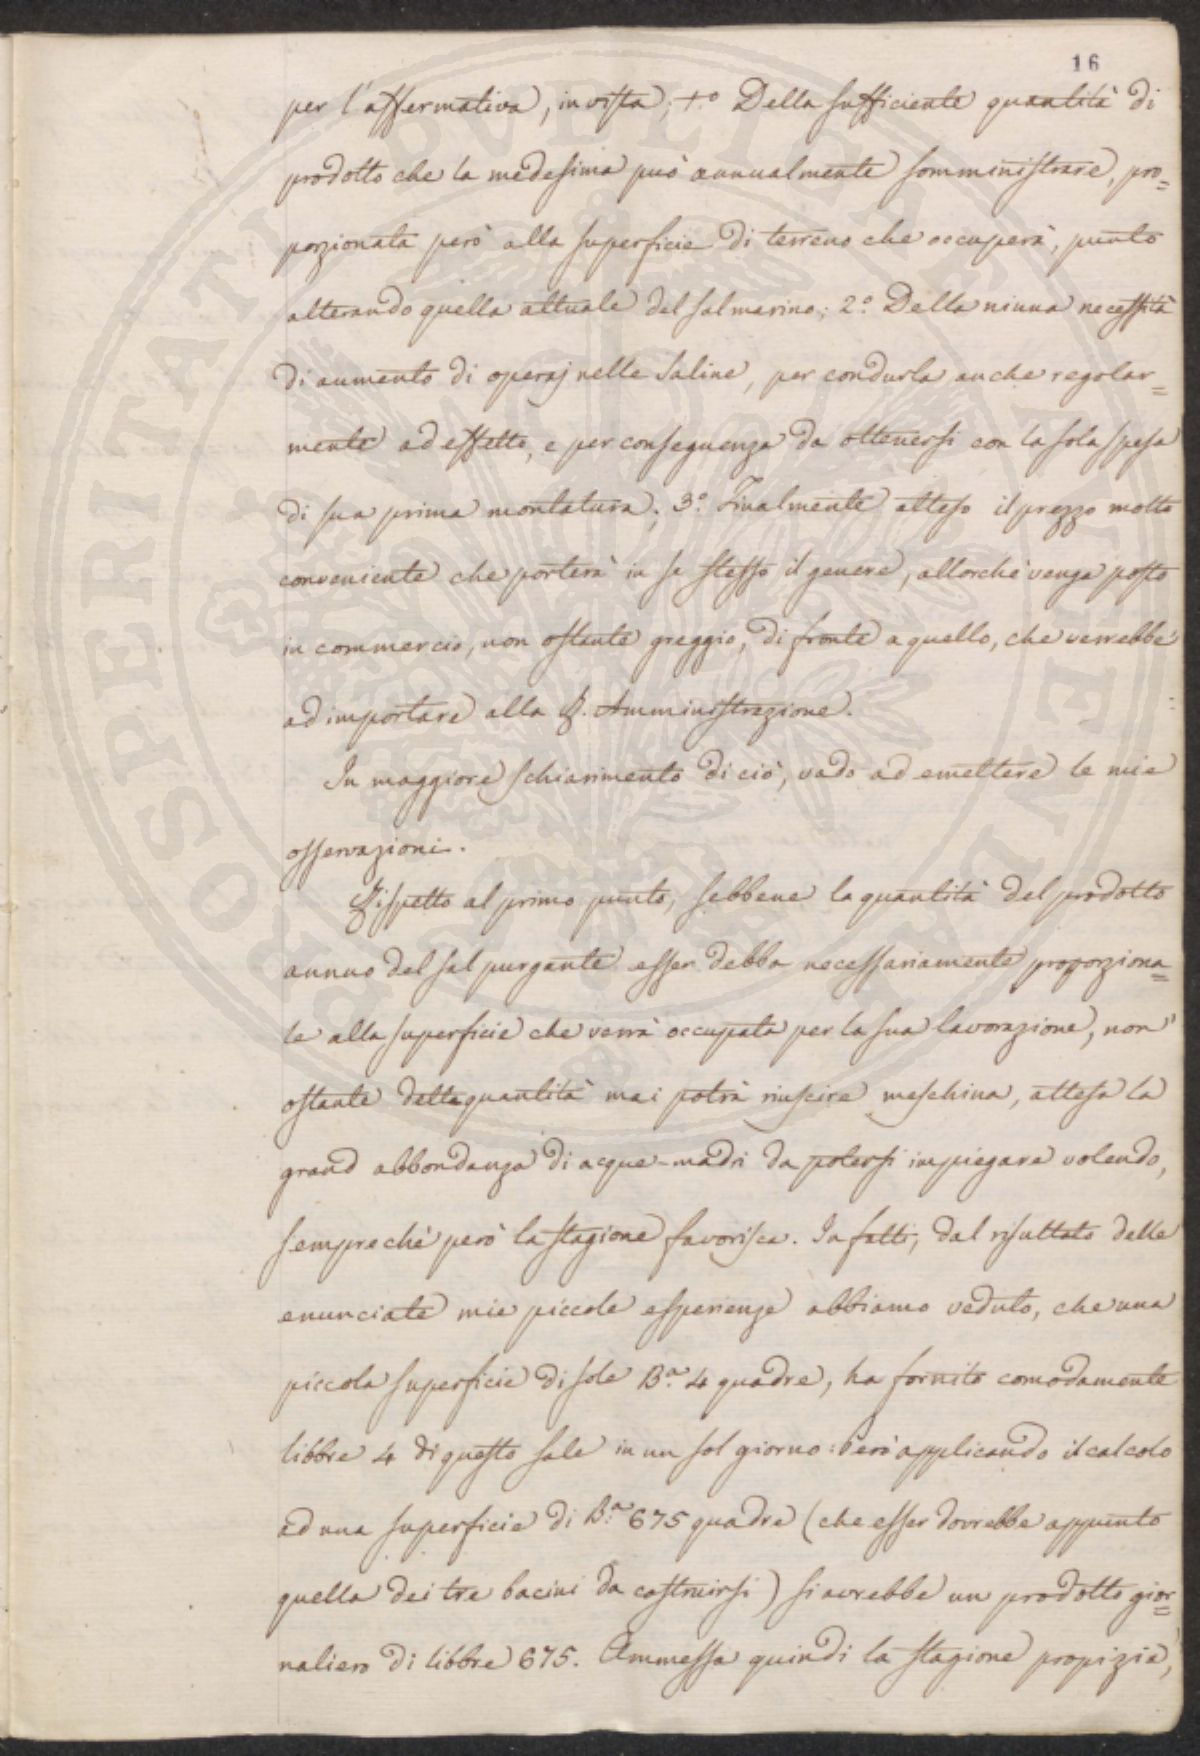 16
per l'affermativa, in vista; 1.° Della sufficiente quantità di
prodotto che la medesima può annualmente somministrare, pro=
porzionata però alla superficie di terreno che occuperà, punto
alterando quella attuale del sal marino; 2.° Della niuna necessità
di aumento di operaj nelle Saline, per condurla anche regolar=
mente ad effetto, e per conseguenza da ottenersi con la sola spesa
di sua prima montatura; 3.° Finalmente atteso il prezzo molto
conveniente che porterà in se stesso il genere, allorchè venga posto
in commercio, non ostante greggio, di fronte a quello, che verrebbe
ad importare alla R. Amministrazione.
In maggiore schiarimento di ciò, vado ad emettere le mie
osservazioni.
Rispetto al primo punto, sebbene la quantità del prodotto
annuo del sal purgante esser debba necessariamente proporziona=
le alla superficie che verrà occupata per la sua lavorazione, non
ostante detta quantità mai potrà riuscire meschina, attesa la
grand abbondanza di acque-madri da potersi impiegare volendo,
sempre chè però la stagione favorisca. In fatti, dal risultato delle
enunciate mie piccole esperienze abbiamo veduto, che una
piccola superficie di sole B.ª 4 quadre, ha fornito comodamente
libbre 4 di questo sale in un sol giorno: Però applicando il calcolo
ad una superficie di B.ª 675 quadre (che esser dovrebbe appunto
quella dei tre bacini da costruirsi) si avrebbe un prodotto gior=
naliero di libbre 675. Ammessa quindi la stagione propizia,
PROSPERITATI PVBLICAE AVGENDAE